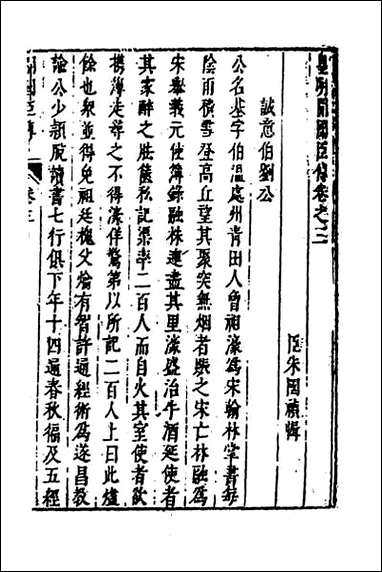 皇明開國臣傳卷之三
臣朱國禎輯
誠意伯劉公
公名基字伯溫處州青田人曾祖濠爲宋翰林掌書每
陰雨積雪登高丘望其聚突無烟者賑之宋亡林融爲
宋舉義元使簿錄融株連盡其里濠盛治牛酒延使者
其家醉之壯饌私記渠率二百人而自火其室使者欲
携簿走尋之不得濠佯驚第以所記二百人上曰此燼
餘也衆並得免祖廷槐父爚有智許通經術爲遂昌教
諭公少穎脫讀書七行俱下年十四通春秋福及五經
開國臣傳
卷三